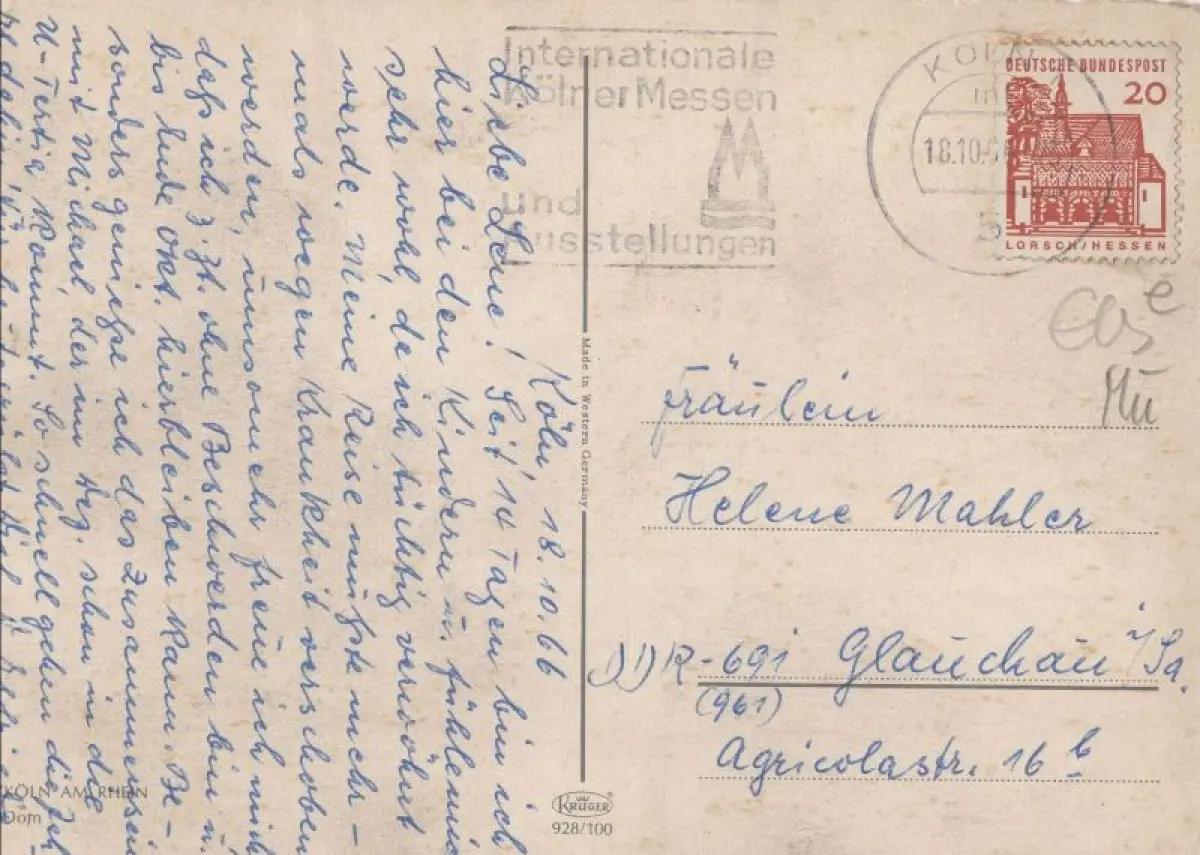 Internationale
Kölner Messen
und
Ausstellungen
KÖLN
18.10.66
DEUTSCHE BUNDESPOST
20
LORSCH/HESSEN
Mu
Köln, 18. 10. 66
Liebe Lene! Seit 14 Tagen bin ich
hier bei den Kindern u. fühle mich
sehr wohl, da ich tüchtig verwöhnt
werde. Meine Reise mußte mehr-
mals wegen Krankheit verschoben
werden, umsomehr freue ich mich
daß ich z. Zt. ohne Beschwerden bin u.
bis Ende Okt. hierbleiben kann. Be-
sonders genieße ich das Zusammensein
mit Michael, der im Aug. schon in die
U-Tertia kommt. So schnell gehen die Jah
Made in Western Germany
Fräulein
Helene Mahler
DDR-691 Glauchau /Sa.
(961)
Agricolastr. 16 b
KÖLN AM RHEIN
Dom
KRÜGER
928/100